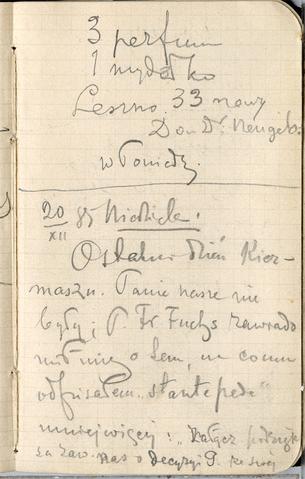 3 perfum
1 mydełko
Leszno. 33 nowy
Dom Dr.
w Poniedz.
20/XII 85 Niedziela.
Ostatni dzień Kier-
maszu. Panie nasze nie
były; P. Fr. Fuchs zawiado
mił mnie o tem, na co mu
odpisałem "stante pede"
mniej więcej: "Załącz
za zaw. nas o decyzyi P.